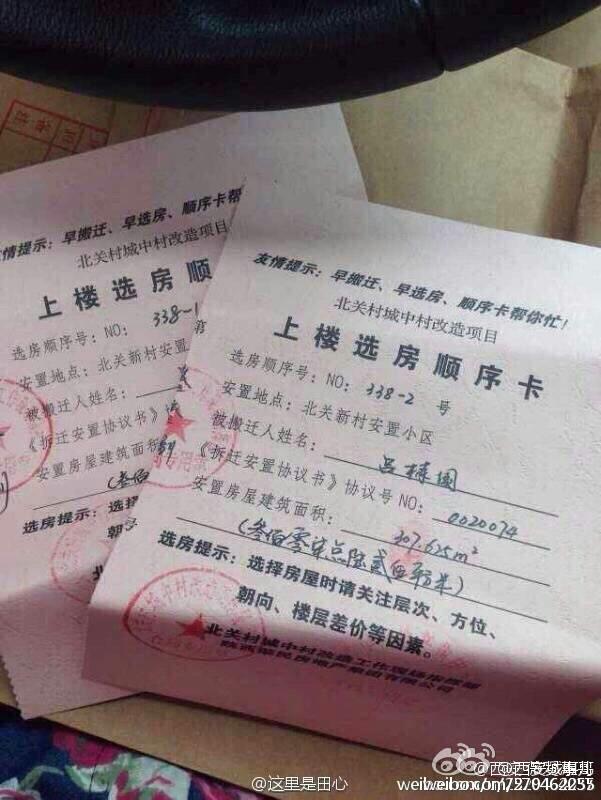 友情提示：早搬迁、早选房、顺序卡帮
北关村城中村改造项目
上楼选房顺
选房顺序号：NO：338-1
安置地点：北关新村安置
被搬迁人姓名：
《拆迁安置协议书》
安置房屋建筑面积
(叁佰
选房提示：选择
朝
北关
友情提示：早搬迁、早选房、顺序卡帮你忙！
北关村城中村改造项目
上楼选房顺序卡
选房顺序号：NO：338-2 号
安置地点：北关新村安置小区
被搬迁人姓名：
《拆迁安置协议书》协议号NO：0020074
安置房屋建筑面积：307.625m²
(叁佰零柒点陆贰伍平方米)
选房提示：选择房屋时请关注层次、方位、
朝向、楼层差价等因素。
北关村城中村改造工作现场指挥部
房地产集团有限公司
@这里是田心